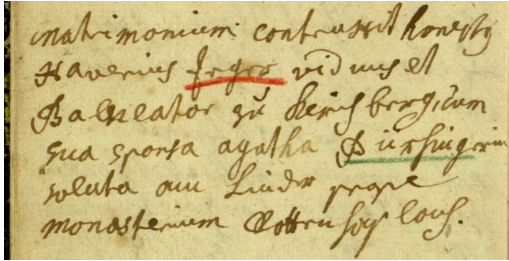 matrimonium contraxit honestg
Xaverius Jeger viduus et
Balneator zu Kirchberg cum
sua sponsa agatha Bürsingerin
soluta au Linder prope
monasterium